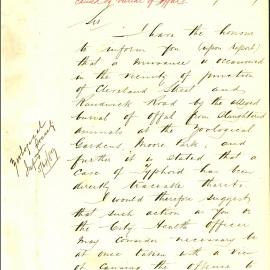 caused by burial of offal
Sir
I have the honour
to inform you (upon report)
that a nuisance is occasioned
in the vicinity of junction
of Cleveland Street and
Randwick Road by the alleged
burial of offal from slaughtered
animals at the Zoological
Gardens, Moore Park, and
further it is stated that a
case of Typhoid has been
directly traceable thereto.
I would therefore suggest
that such action as you or
the City Health Officer
may consider necessary be
at once taken with a view
of causing the offence to
Zoological
Society